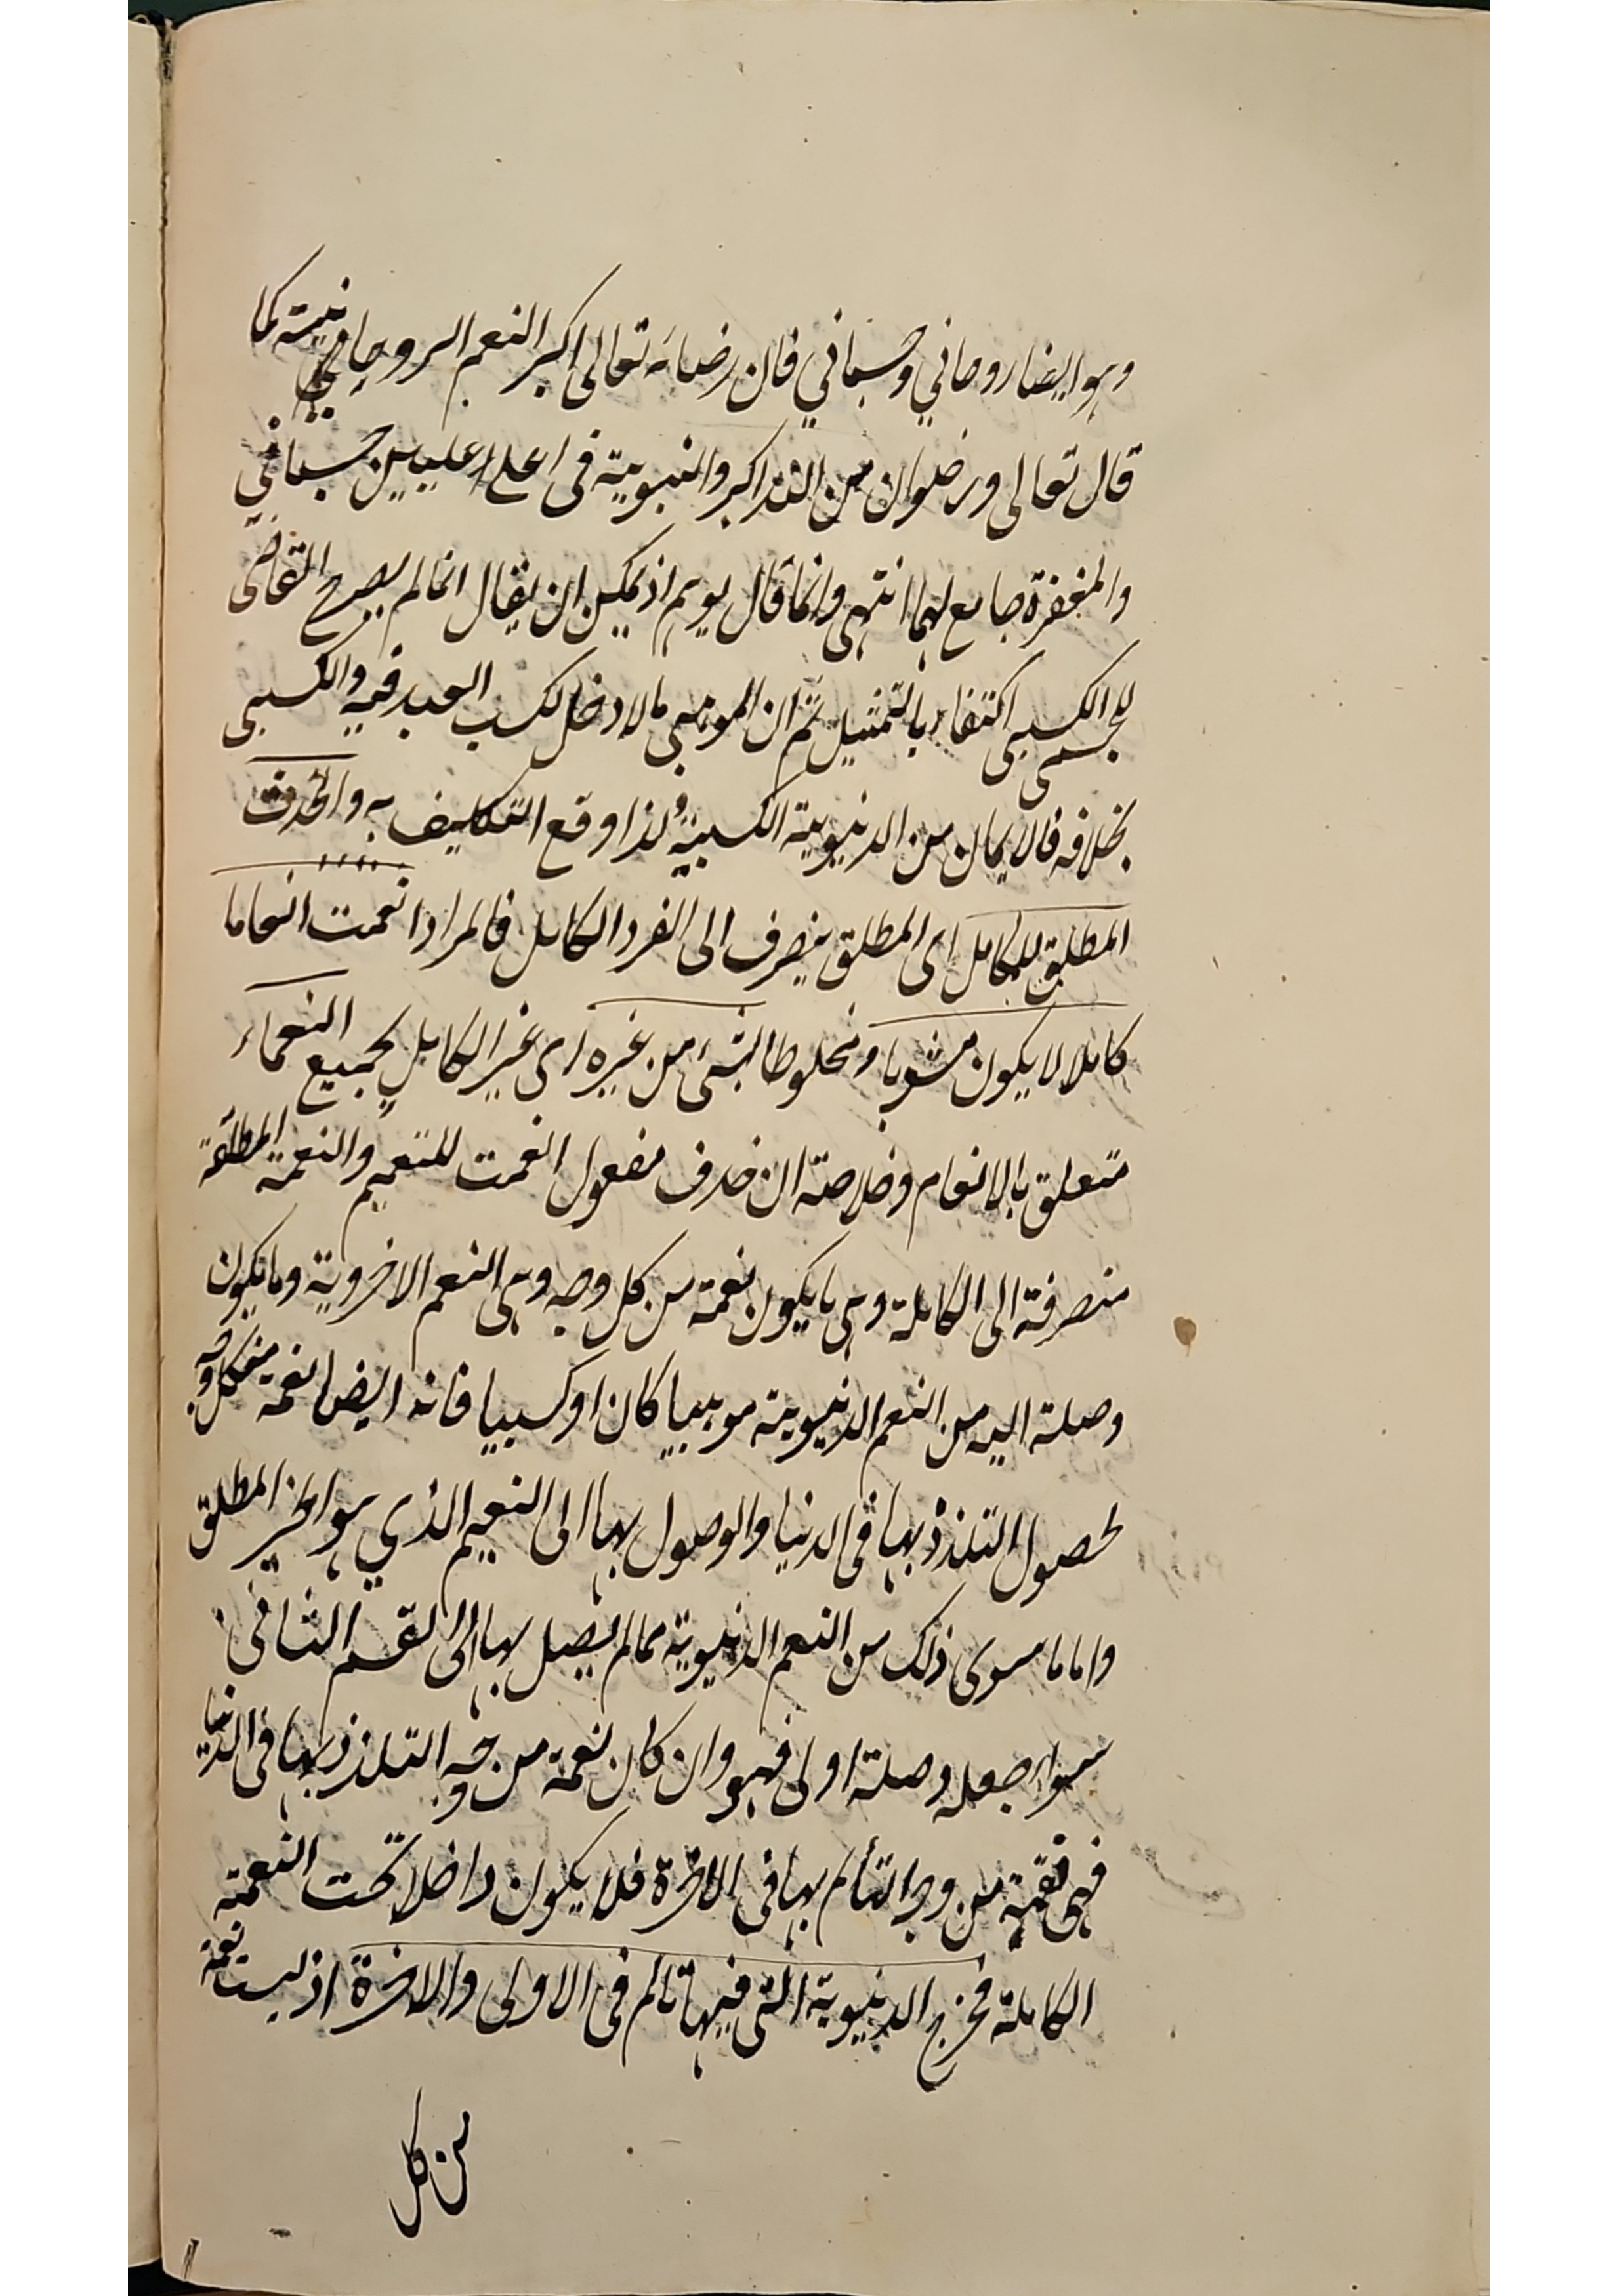 وهو ايضا روحاني وجسماني فان رضاءه تعالى اكبر النعم الروحانية كما
قال تعالى ورضوان من الله اكبر والنبوية فى اعلا عليين جسماني
والمغفرة جامع لهما انتهى وانما قال يوهم اذ يمكن ان يقال انما لم يصرح القاضى
للجسمى الكسبى اكتفاء بالتمثيل ثم ان الموهبى ما لا دخل لكسب العبد فيه والكسبى
بخلافه فالايمان من الدنيوية الكسبية ولذا وقع التكليف به والحذف
المطلق للكامل اى المطلق ينصرف الى الفرد الكامل فالمراد انعمت انعاما
كاملا لا يكون مشوبا ومخلوطا بشئ من غيره اى غير الكامل بجميع النعماء
متعلق بالانعام وخلاصته ان حذف مفعول انعمت للتعميم والنعمة المطلقة
منصرفة الى الكاملة وهى ما يكون نعمة من كل وجه وهى النعم الاخروية وما يكون
وصلة اليه من النعم الدنيوية موهبيا كان او كسبيا فانه ايضا نعمة من كل وجه
لحصول التلذذ بها فى الدنيا والوصول بها الى النعيم الذي هو الخير المطلق
واما ما سوى ذلك من النعم الدنيوية مما لم يصل بها الى القسم الثاني
سواء جعله وصلة اولى فهو وان كان نعمة من وجه التلذذ بها فى الدنيا
فهى نقمة من وجه التألم بها فى الاخرة فلا يكون داخلا تحت النعمة
الكاملة فخرج الدنيوية التى فيها تالم فى الاولى والاخرة اذ ليست نعمة
من كل